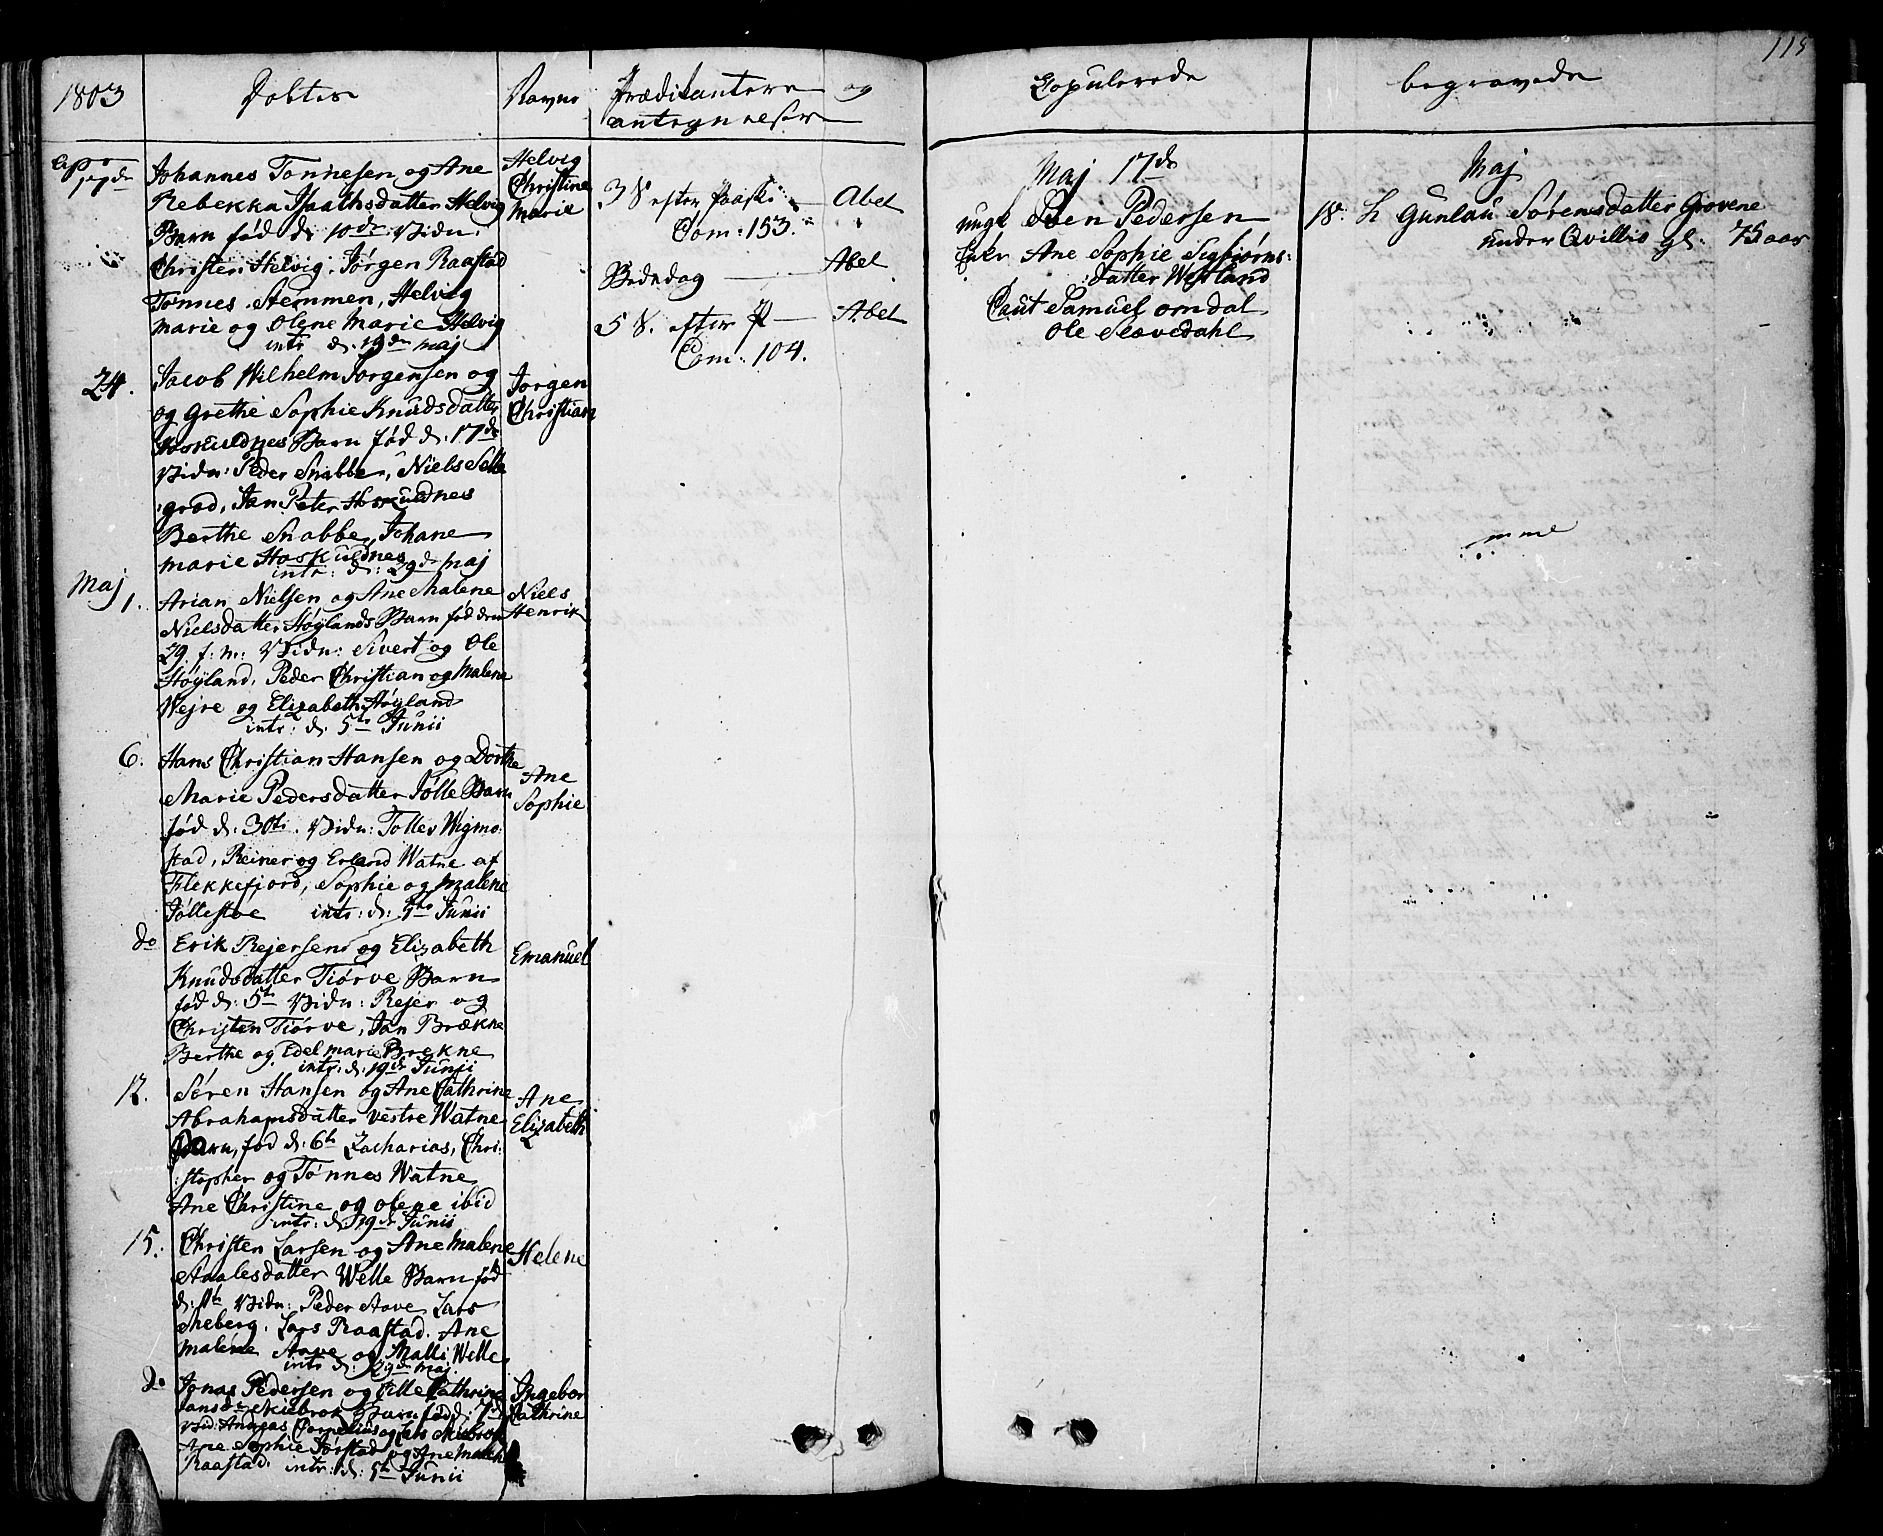 115
1803
Døbte
Navne
Prædikantere og
antegnelser
Copulerede
begravede
Apr.
17de
Johannes Tønnesen og Ane
Rebekka Isaachsdatter Helvig
Barn fød d: 10de Vidn:
Christen Helvig, Jørgen Raastad
Tønnes Stemmen, Helvig
Marie og Olene Marie Helvig
intr d: 19de Maj
Helvig
Christine
Marie
24.
Jacob Wilhelm Jørgensen og
og Grethe Sophie Knudsdatter
Hoskuldnes Barn fød d: 17de
Vidn: Peder Snabbe, Niels Selle
grod, Jan Peter Hoskuldnes
Berthe Snabbe, Johane
Marie Hoskuldnes
intr: d: 29de Maj
Jørgen
Christian
Maj 1.
Arian Nielsen og Ane Malene
Nielsdatter Høylands Barn fød den
29 f: m: Vidn: Sivert og Ole
Høyland, Peder Christian og Malene
Wejre og Elizabeth Høyland
intr: d: 5te Junii
Niels
Henrik
6.
Hans Christian Hansen og Dorthe
Marie Pedersdatter Jølle Barn
fød d: 30te. Vidn: Tollev Wigmo-
stad, Reiner og Erland Watne af
Flekkefjord, Sophie og Malene
Jøllestøe intr: d: 5te Junii
Ane
Sophie
do
Erik Rejersen og Elizabeth
Knudsdatter Tiørve Barn
fød d: 5te Vidn: Rejer og
Christen Tiørve, Jan Brækne
Berthe og Edel Marie Brekne
intr: d: 19de Junii
Emanuel
12.
Søren Hansen og Ane Cathrine
Abrahamsdatter Vestre Watne
Barn, fød d: 6te Zacharias, Chri-
stopher og Tønnes Watne
Ane Christine og Olene ibid
intr: d: 19de Junii
Ane
Elizabeth
15.
Christen Larsen og Ane Malene
Aaalesdatter Welle Barn fød
Vidn: Peder Aave Lars
Meberg, Lars Raastad. Ane
Malene Aave og Malli Welle
intr d: 29de Maj
Helene
do
Jonas Pedersen og Cathrine
Jansdr Skiebrok Barn fød d: 7de
Vid: Andreas Cornelius og Lars Skiebrok
Ane Sophie Jørstad og Ane Malene
Raastad. intr: d: 5te Junii
Ingebor
Cathrine
3 S. efter Paaske — Abel
Com: 153.
Bededag — Abel
5 S. efter P — Abel
Com: 104.
Maj 17de
unge Sven Pedersen
Enke Ane Sophie Sigbiørns-
datter Westland
Caut Samuel Omdal
Ole Slævedahl
Maj
18. h Gunlau Sørensdatter Grovene
under Qvillio gl. 75 aar